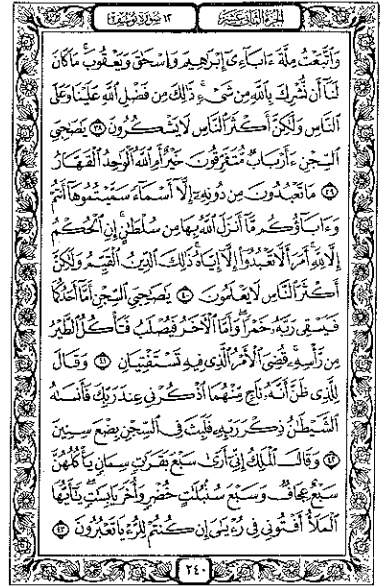 الجزء الثاني عشر ١٢ سورة يوسف
وَاتَّبَعْتُ مِلَّةَ ءَابَآءِىٓ إِبْرَٰهِيمَ وَإِسْحَٰقَ وَيَعْقُوبَ ۚ مَا كَانَ
لَنَآ أَن نُّشْرِكَ بِٱللَّهِ مِن شَىْءٍ ۚ ذَٰلِكَ مِن فَضْلِ ٱللَّهِ عَلَيْنَا وَعَلَى
ٱلنَّاسِ وَلَٰكِنَّ أَكْثَرَ ٱلنَّاسِ لَا يَشْكُرُونَ ٣٨ يَٰصَىٰحِبَىِ
ٱلسِّجْنِ ءَأَرْبَابٌ مُّتَفَرِّقُونَ خَيْرٌ أَمِ ٱللَّهُ ٱلْوَٰحِدُ ٱلْقَهَّارُ
٣٩ مَا تَعْبُدُونَ مِن دُونِهِۦٓ إِلَّآ أَسْمَآءً سَمَّيْتُمُوهَآ أَنتُمْ
وَءَابَآؤُكُم مَّآ أَنزَلَ ٱللَّهُ بِهَا مِن سُلْطَٰنٍ ۚ إِنِ ٱلْحُكْمُ
إِلَّا لِلَّهِ ۚ أَمَرَ أَلَّا تَعْبُدُوٓا۟ إِلَّآ إِيَّاهُ ۚ ذَٰلِكَ ٱلدِّينُ ٱلْقَيِّمُ وَلَٰكِنَّ
أَكْثَرَ ٱلنَّاسِ لَا يَعْلَمُونَ ٤٠ يَٰصَىٰحِبَىِ ٱلسِّجْنِ أَمَّآ أَحَدُكُمَا
فَيَسْقِى رَبَّهُۥ خَمْرًا ۖ وَأَمَّا ٱلْءَاخَرُ فَيُصْلَبُ فَتَأْكُلُ ٱلطَّيْرُ
مِن رَّأْسِهِۦ ۚ قُضِىَ ٱلْأَمْرُ ٱلَّذِى فِيهِ تَسْتَفْتِيَانِ ٤١ وَقَالَ
لِلَّذِى ظَنَّ أَنَّهُۥ نَاجٍ مِّنْهُمَا ٱذْكُرْنِى عِندَ رَبِّكَ فَأَنسَىٰهُ
ٱلشَّيْطَٰنُ ذِكْرَ رَبِّهِۦ فَلَبِثَ فِى ٱلسِّجْنِ بِضْعَ سِنِينَ
٤٢ وَقَالَ ٱلْمَلِكُ إِنِّىٓ أَرَىٰ سَبْعَ بَقَرَٰتٍ سِمَانٍ يَأْكُلُهُنَّ
سَبْعٌ عِجَافٌ وَسَبْعَ سُنۢبُلَٰتٍ خُضْرٍ وَأُخَرَ يَابِسَٰتٍ ۖ يَٰٓأَيُّهَا
ٱلْمَلَأُ أَفْتُونِى فِى رُءْيَٰىَ إِن كُنتُمْ لِلرُّءْيَا تَعْبُرُونَ ٤٣
٢٤٠